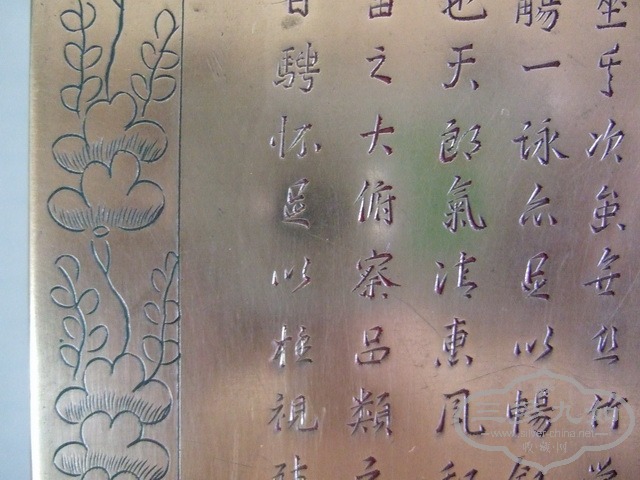 坐其次虽無丝竹管
觴一詠亦足以暢叙
也天郎氣清惠風和
宙之大俯察品類之
騁怀足以極視聽
www.silver-china.net
收藏网